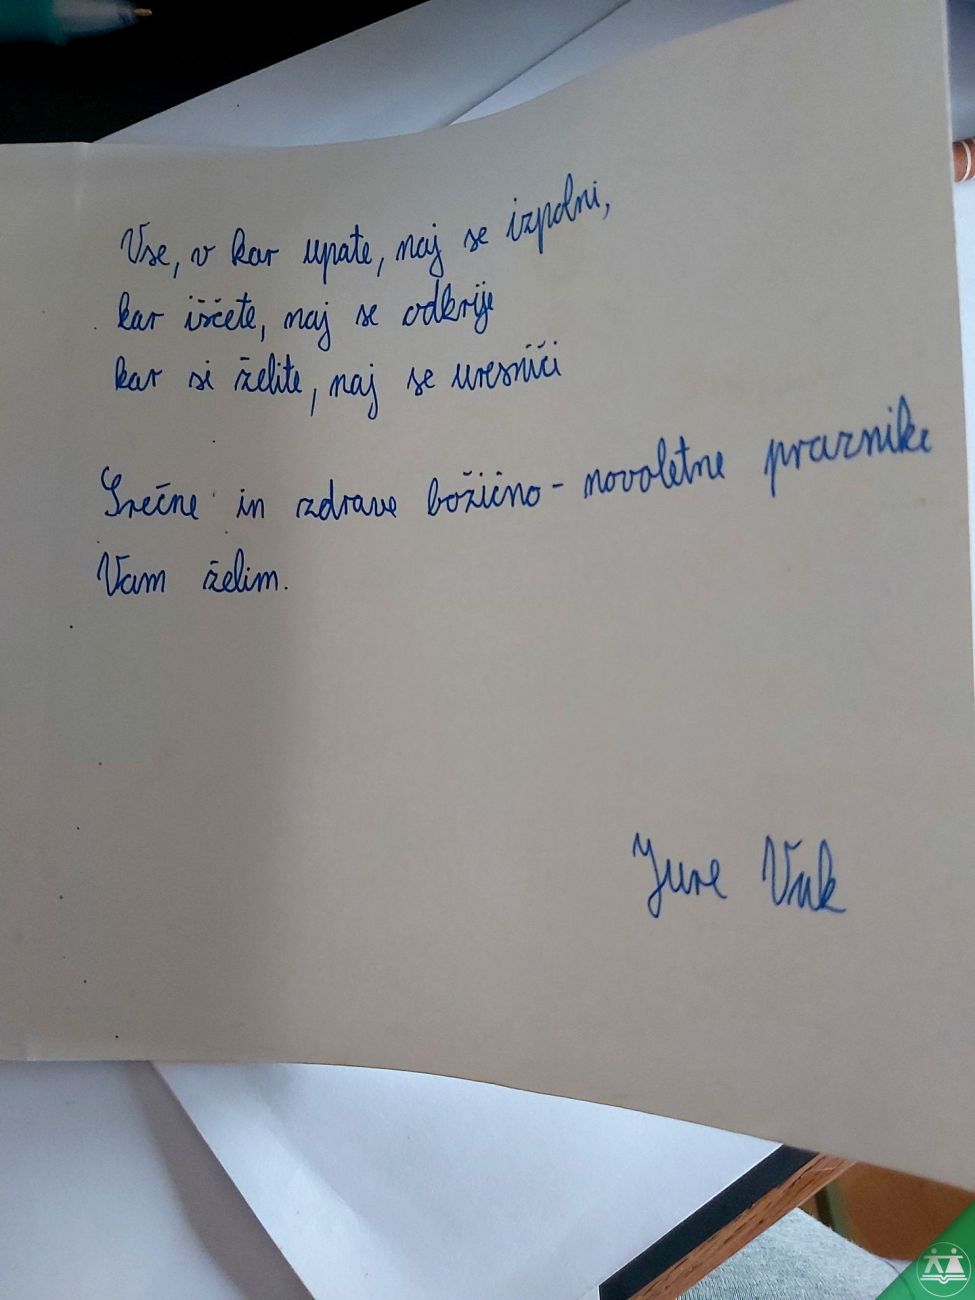 Vse, v kar upate, naj se izpolni,
kar iščete, naj se odkrije
kar si želite, naj se uresniči
Srečne in zdrave božično - novoletne praznike
Vam želim.
Jure Vuk